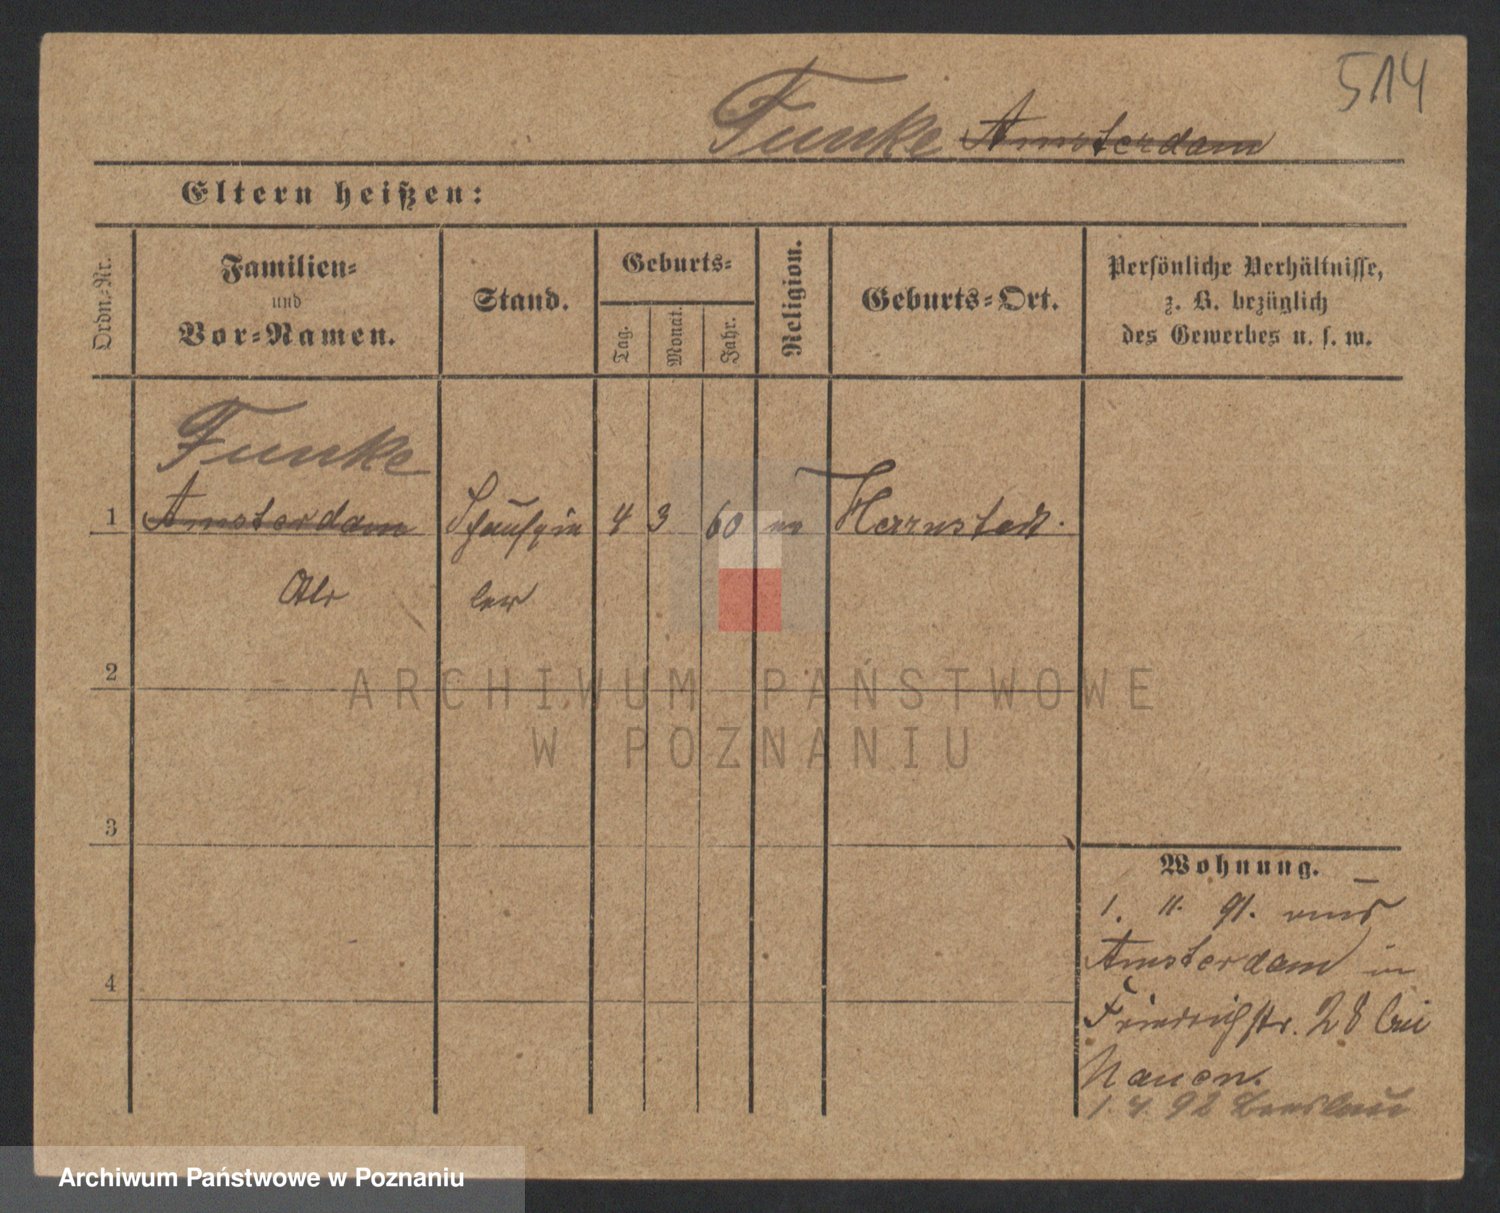 514
Funke Amsterdam
Eltern heißen:
Ordn.-Nr.
Familien-
und
Vor-Namen.
Stand.
Geburts-
Tag.
Monat.
Jahr.
Religion.
Geburts-Ort.
Persönliche Verhältnisse,
z. B. bezüglich
des Gewerbes u. s. w.
Funke
1 Amsterdam Schauspie 4 3 60 Herrnstadt.
ler
2
ARCHIWUM PAŃSTWOWE
W POZNANIU
3
Wohnung.
1. 11. 91. aus
Amsterdam in
4
Friedrichstr. 28 bei
Nauen.
1. 4. 92 Breslau
Archiwum Państwowe w Poznaniu